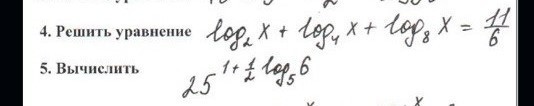 4. Решить уравнение log₂ x + log₄ x + log₈ x = 11/6
5. Вычислить 25^(1 + 1/2 log₅ 6)